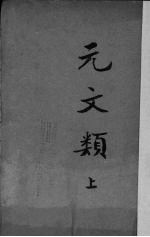 元文類
上